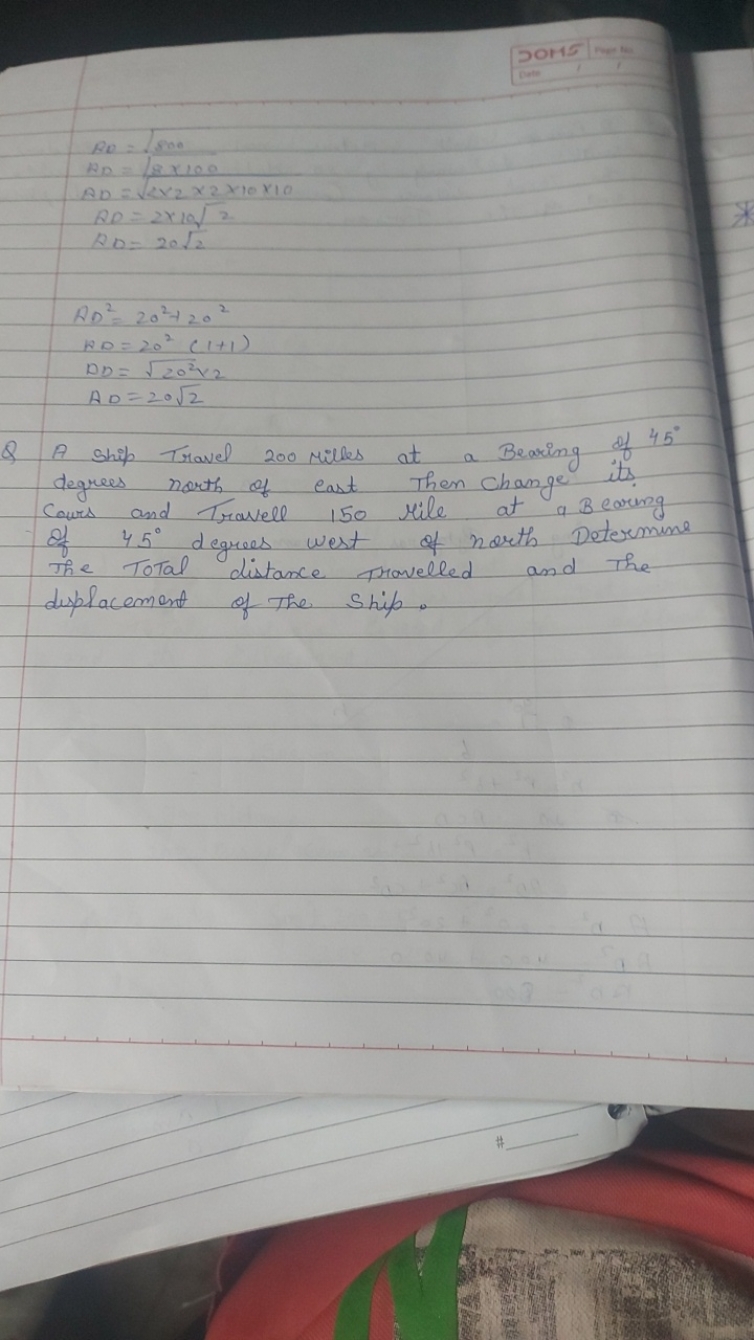 DOMS Page No.
Date / /
AD = √800
AD = √8×100
AD = √2×2×2×10×10
AD = 2×10√2
AD = 20√2
AD² = 20²+20²
AD = 20² (1+1)
DD = √20²×2
AD = 20√2
Q A Ship Travel 200 Milles at a Bearing of 45°
degrees north of east Then Change its
Cours and Travell 150 Mile at a Bearing
Of 45° degrees west of north Determine
The ToTal distance Travelled and The
displacement of The Ship.
#